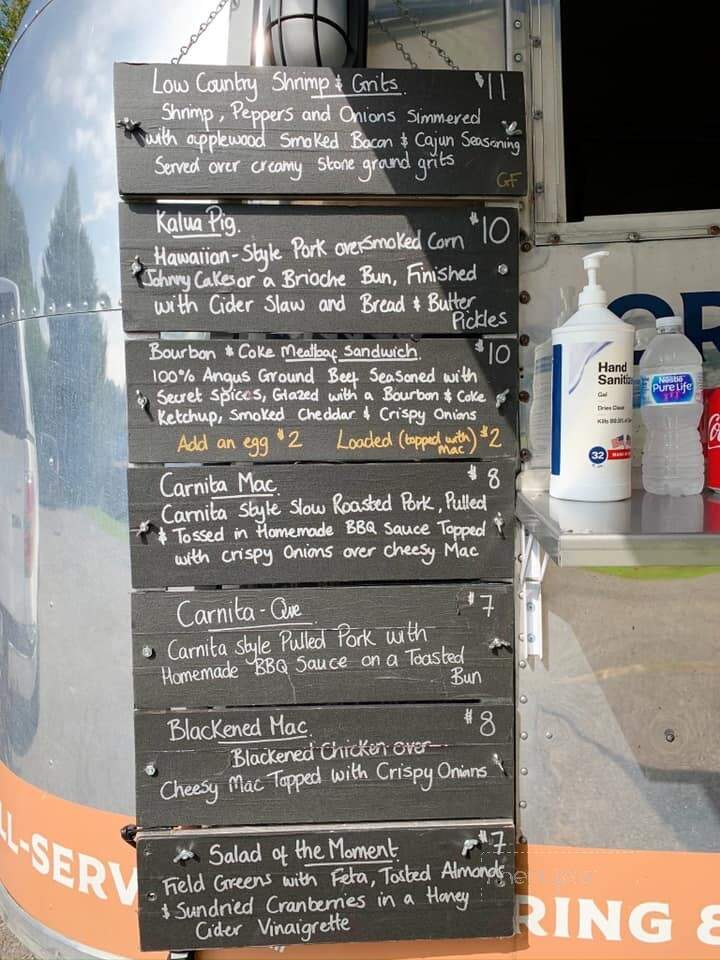 Low Country Shrimp & Grits $11
Shrimp, Peppers and Onions Simmered
with applewood Smoked Bacon & Cajun Seasoning
Served over creamy stone ground grits
GF
Kalua Pig. $10
Hawaiian-Style Pork over smoked Corn
Johnny Cakes or a Brioche Bun, Finished
with Cider Slaw and Bread & Butter
Pickles
Bourbon & Coke Meatloaf Sandwich $10
100% Angus Ground Beef Seasoned with
Secret Spices, Glazed with a Bourbon & Coke
Ketchup, Smoked Cheddar & Crispy Onions
Add an egg $2 Loaded (topped with Mac) $2
Carnita Mac $8
Carnita Style Slow Roasted Pork, Pulled
& Tossed in Homemade BBQ Sauce Topped
with crispy Onions over cheesy Mac
Carnita-Que $7
Carnita style Pulled Pork with
Homemade BBQ Sauce on a Toasted
Bun
Blackened Mac $8
Blackened Chicken over
Cheesy Mac Topped with Crispy Onions
Salad of the Moment $7
Field Greens with Feta, Toasted Almonds
& Sundried Cranberries in a Honey
Cider Vinaigrette
Hand
Saniti
Gel
32
Nestle
Pure Life
LL-SERV
RING &
OR